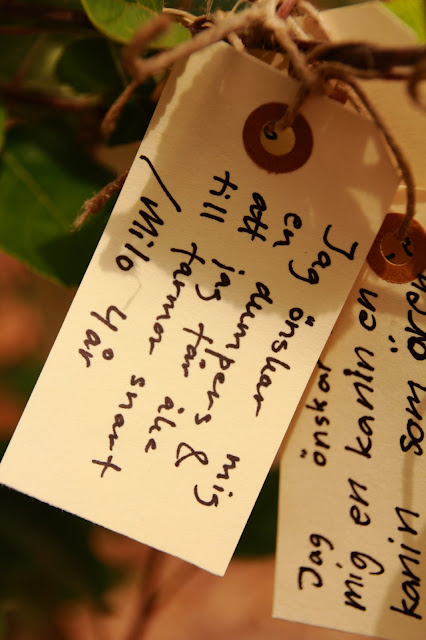 Jag önskar mig
en dumpers &
att jag får åka
till farmor snart
/Milo 4 år
Jag önskar
mig en kanin en
kanin som